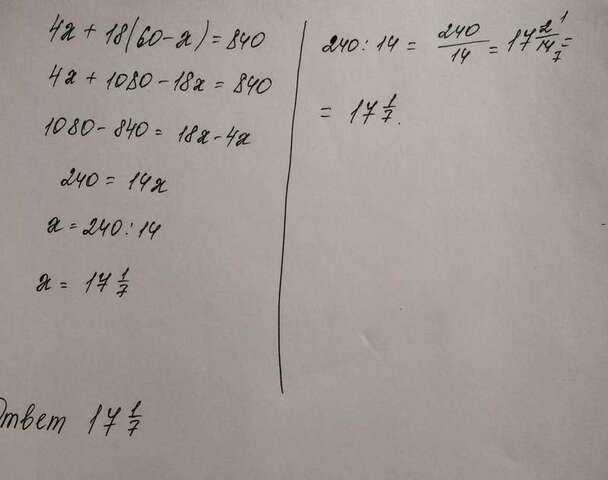 4x + 18(60 - x) = 840
4x + 1080 - 18x = 840
1080 - 840 = 18x - 4x
240 = 14x
x = 240 : 14
x = 17 1/7
Ответ 17 1/7
240 : 14 = 240/14 = 17 2/14 1/7 =
= 17 1/7.